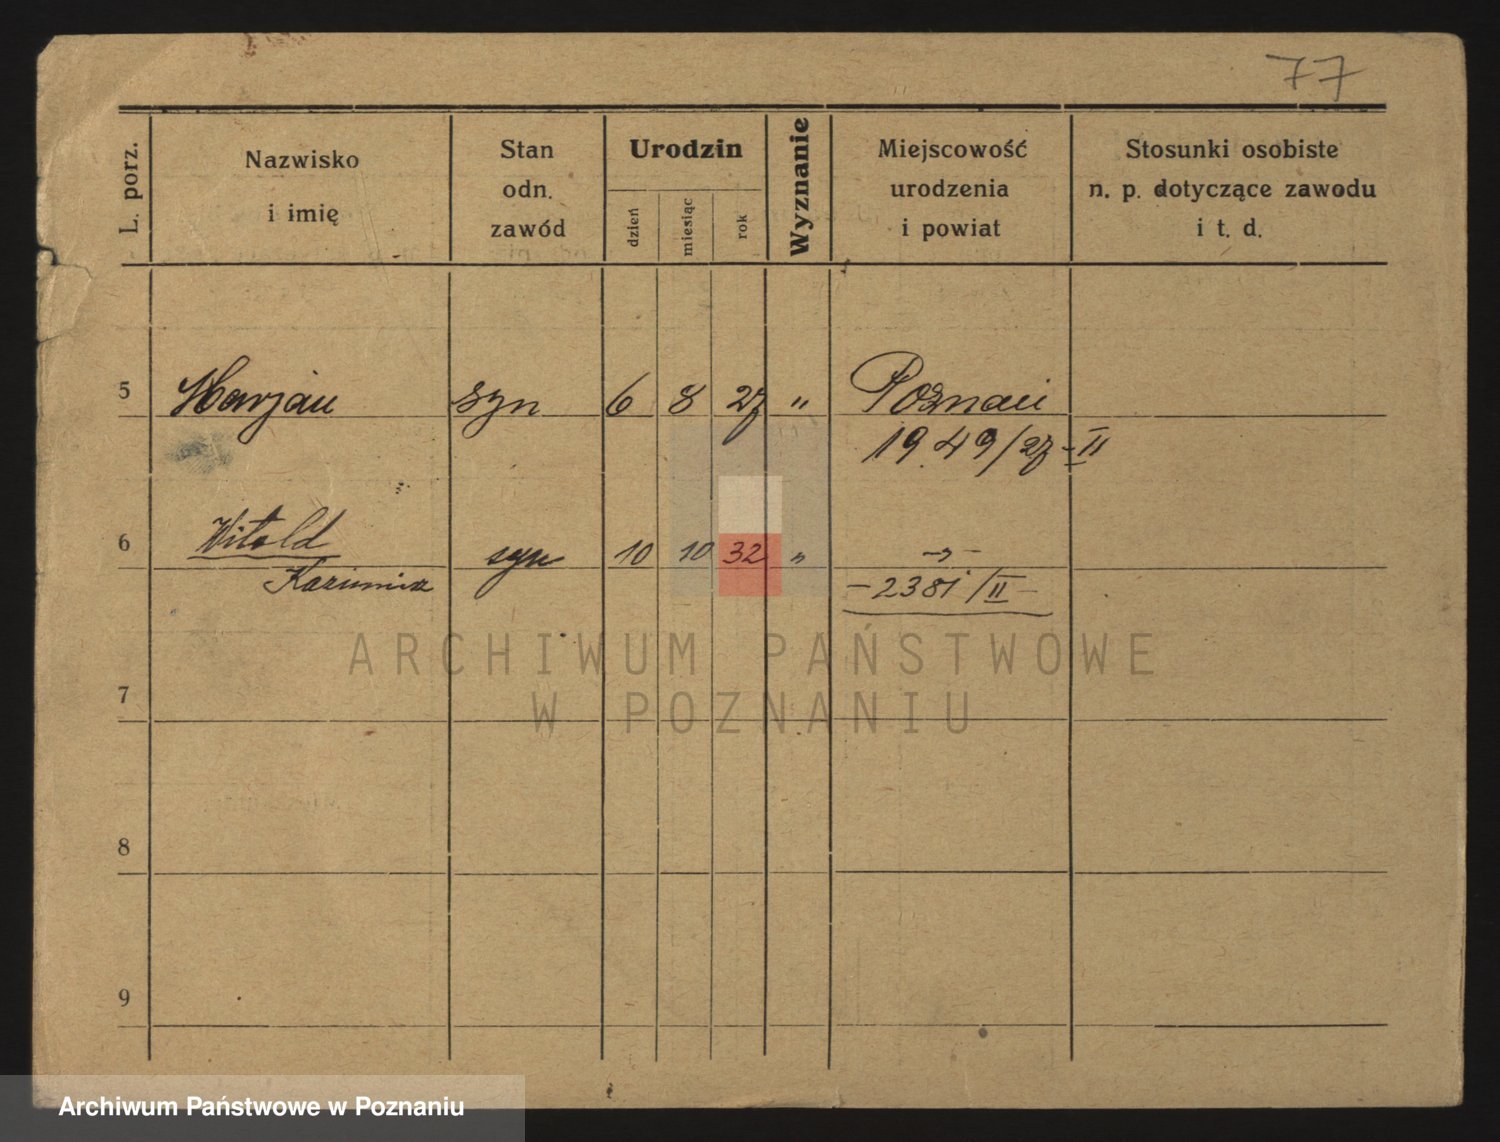 77
L. porz.
Nazwisko
i imię
Stan
odn.
zawód
Urodzin
dzień
miesiąc
rok
Wyznanie
Miejscowość
urodzenia
i powiat
Stosunki osobiste
n. p. dotyczące zawodu
i t. d.
5 Marjan syn 6 8 27 " Poznań
1949/27-II
6 Witold syn 10 10 32 " -"-
Kazimierz -2381/II-
7
8
9
ARCHIWUM PAŃSTWOWE
W POZNANIU
Archiwum Państwowe w Poznaniu